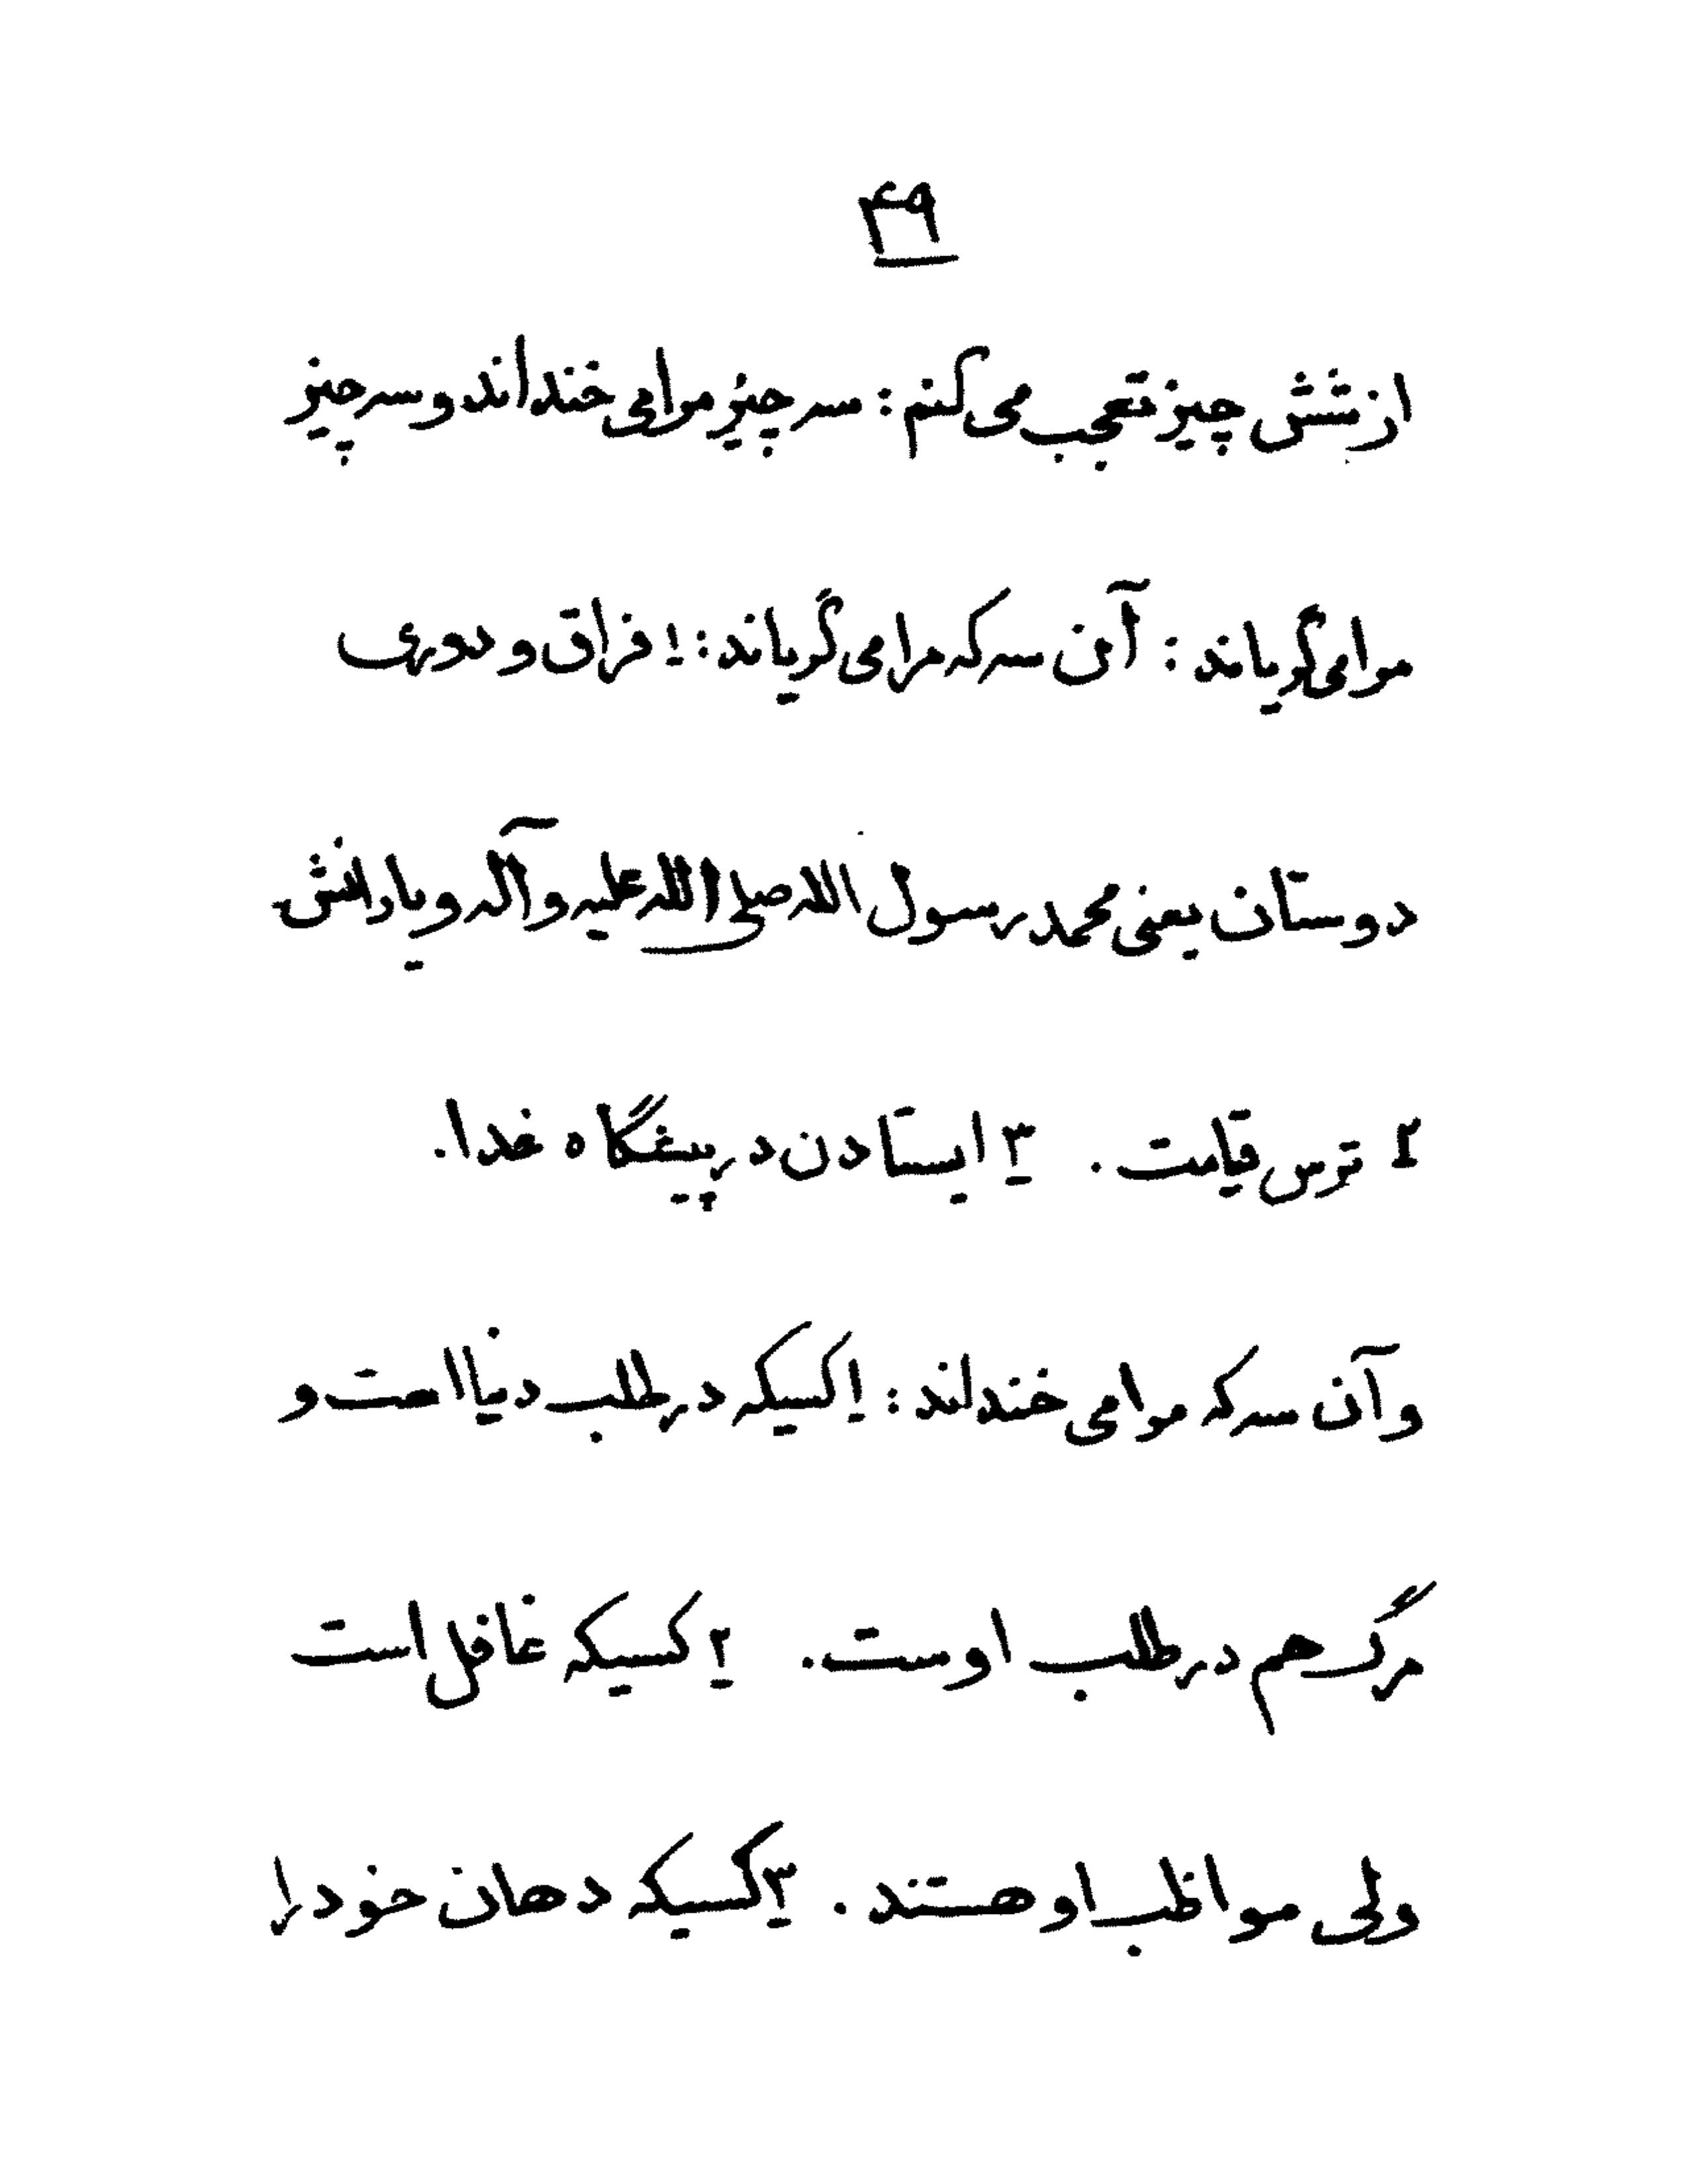 ۴۹
از شش چیز تعجب می کنم : سه چیز مرا می خنداند و سه چیز
مرا می گریاند : آن سه که مرا می گریاند : ۱ فراق و دوری
دوستان یعنی محمد رسول الله صلی الله علیه و آله و یارانش
۲ ترس قیامت . ۳ ایستادن در پیشگاه خدا .
و آن سه که مرا می خنداند : ۱ کسیکه در طلب دنیا است و
مرگ هم در طلب اوست . ۲ کسیکه غافل است
ولی مواظب او هستند . ۳ کسیکه دهان خود را